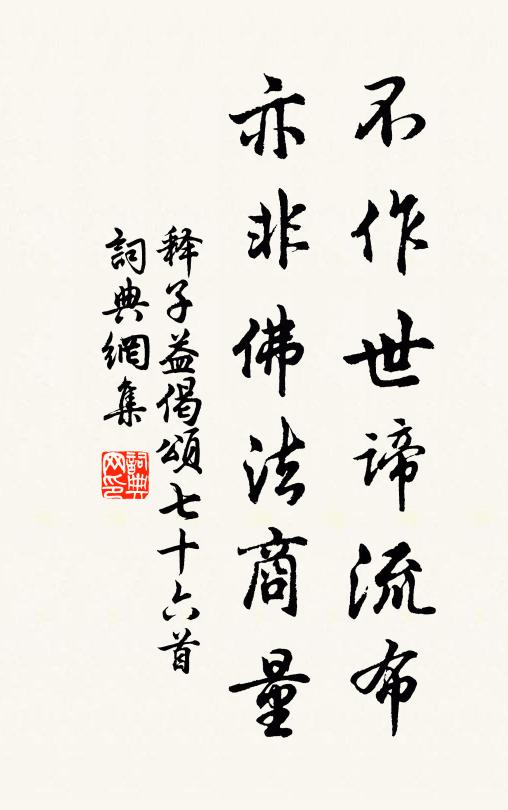 不作世諦流布
亦非佛法商量
释子益偈頌七十六首
詞典網集
詞典網印